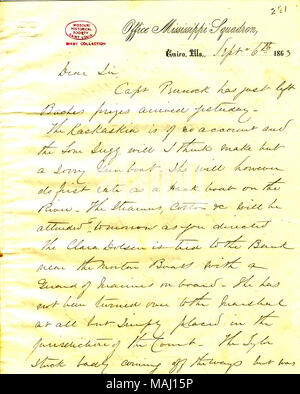 281
MISSOURI
HISTORICAL
SOCIETY
SAINT LOUIS
BIXBY COLLECTION
Office Mississippi Squadron,
Cairo, Ills., Sept. 6th 1863
Dear Sir
Capt Pennock has just left
Baches prizes arrived yesterday –
The Kaskaskia is of no account and
the Tom Sugg will I think make but
a sorry Gun boat. She will however
do first rate as a boat on the
River. The Steamers, Cotton &c will be
attended to tomorrow as you directed
The Clara Dolsen is tied to the Bank
near the Mortar Boats with a
Guard of Marines on board – She has
not been turned over to the Marshal
at all but simply placed in the
jurisdiction of the Court – The
Stuck badly coming off the ways but was
alamy
Image ID: MAJ15P
www.alamy.com